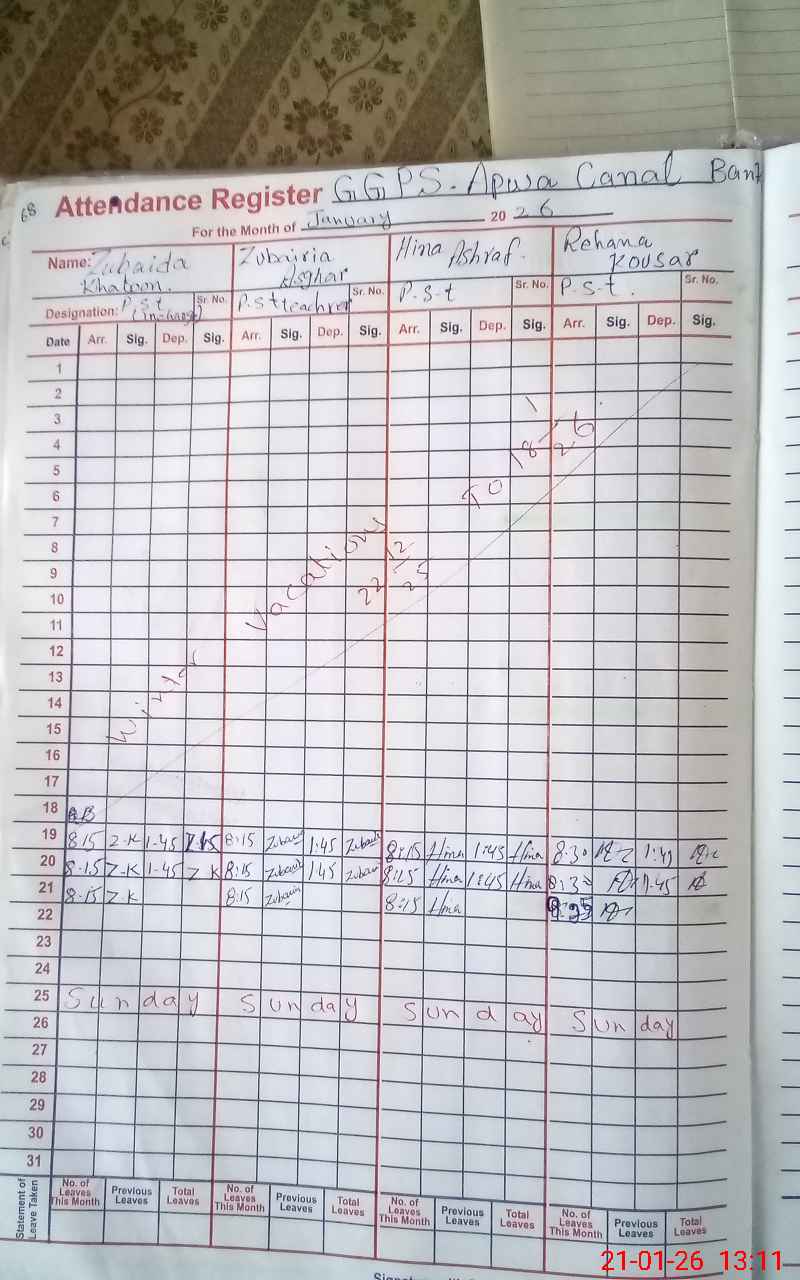 68 Attendance Register GGPS. Apwa Canal Bank
For the Month of January 2026
Name: Zubaida Khatoon. Zubairia Asghar Hina Ashraf. Rehana Kousar
Designation: P.S.t (incharge) Sr. No. P.St teachrer Sr. No. P.S.t Sr. No. P.S.t. Sr. No.
Date Arr. Sig. Dep. Sig. Arr. Sig. Dep. Sig. Arr. Sig. Dep. Sig. Arr. Sig. Dep. Sig.
1
2
3
4
5
6
7
8
9
10
11
12
13
14
15
16
17
18
Winter Vacation 22 12 25 To 18 1 26
19 8:15 Z-K 1-45 8:15 1:45 8:15 Hina 1:45 Hina 8:30
20 8-15 Z-K 1-45 Z K 8:15 1:45 8:15 Hina 1:45 Hina 8:30 1-45
21 8-15 Z K 8:15 8:15 Hina
22
23
24
25 Sunday Sunday Sunday Sunday
26
27
28
29
30
31
Statement of Leave Taken
No. of Leaves This Month Previous Leaves Total Leaves No. of Leaves This Month Previous Leaves Total Leaves No. of Leaves This Month Previous Leaves Total Leaves No. of Leaves This Month Previous Leaves Total Leaves
21-01-26 13:11